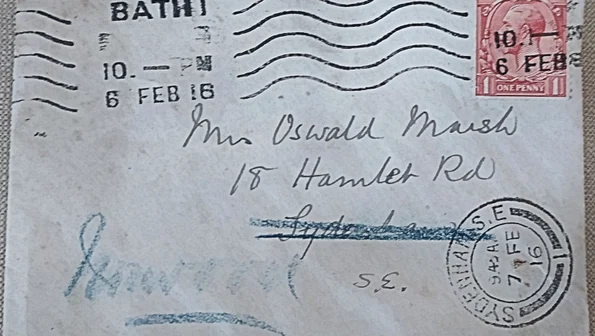 BATH
10. — PM
6 FEB 16
10. —
6 FEB
ONE PENNY
1 1
Mrs Oswald Marsh
18 Hamlet Rd
Sydenham
Norwood
S.E.
SYDENHAM S.E.
9.45 AM
7 FE
16
1